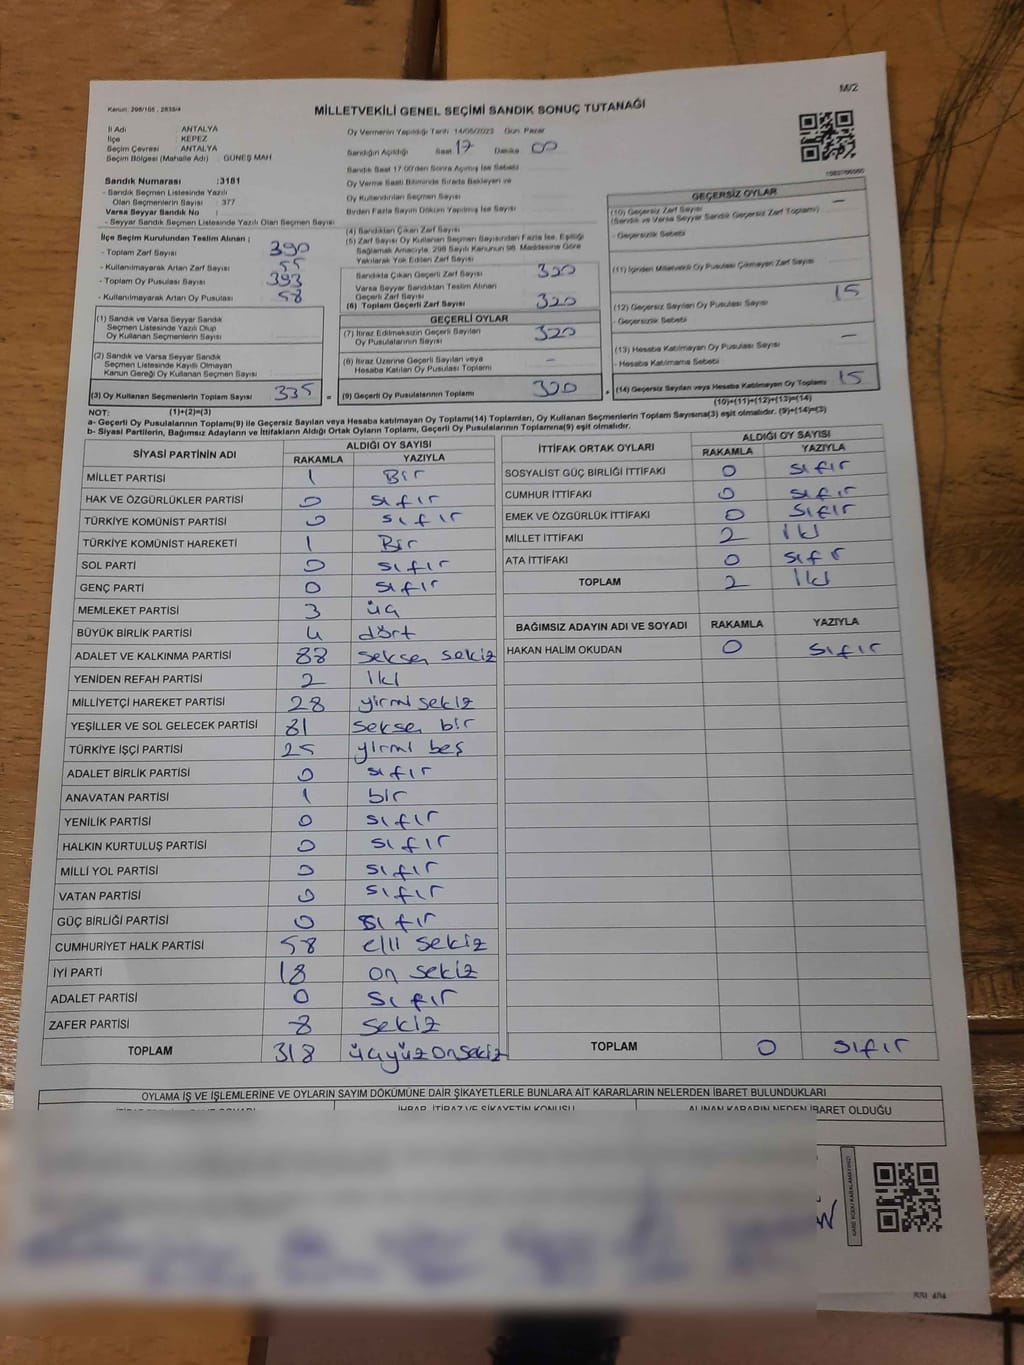 M/2
Kanun: 298/105 , 2839/4
MİLLETVEKİLİ GENEL SEÇİMİ SANDIK SONUÇ TUTANAĞI
İl Adı : ANTALYA
İlçe : KEPEZ
Seçim Çevresi : ANTALYA
Seçim Bölgesi (Mahalle Adı) : GÜNEŞ MAH
Sandık Numarası :3181
- Sandık Seçmen Listesinde Yazılı
Olan Seçmenlerin Sayısı : 377
Varsa Seyyar Sandık No :
- Seyyar Sandık Seçmen Listesinde Yazılı Olan Seçmen Sayısı
İlçe Seçim Kurulundan Teslim Alınan ;
- Toplam Zarf Sayısı : 390
- Kullanılmayarak Artan Zarf Sayısı : 55
- Toplam Oy Pusulası Sayısı : 393
- Kullanılmayarak Artan Oy Pusulası : 58
(1) Sandık ve Varsa Seyyar Sandık
Seçmen Listesinde Yazılı Olup
Oy Kullanan Seçmenlerin Sayısı :
(2) Sandık ve Varsa Seyyar Sandık
Seçmen Listesinde Kayıtlı Olmayan
Kanun Gereği Oy Kullanan Seçmen Sayısı :
(3) Oy Kullanan Seçmenlerin Toplam Sayısı 335 =
Oy Vermenin Yapıldığı Tarih :14/05/2023 Gün: Pazar
Sandığın Açıldığı Saat 17 Dakika 00
Sandık Saat 17:00'den Sonra Açılmış İse Sebebi
Oy Verme Saati Bitiminde Sırada Bekleyen ve
Oy Kullandırılan Seçmen Sayısı
Birden Fazla Sayım Döküm Yapılmış İse Sayısı
(4) Sandıktan Çıkan Zarf Sayısı
(5) Zarf Sayısı Oy Kullanan Seçmen Sayısından Fazla İse, Eşitliği
Sağlamak Amacıyla, 298 Sayılı Kanunun 98. Maddesine Göre
Yakılarak Yok Edilen Zarf Sayısı
Sandıkta Çıkan Geçerli Zarf Sayısı 320
Varsa Seyyar Sandıktan Teslim Alınan
Geçerli Zarf Sayısı
(6) Toplam Geçerli Zarf Sayısı 320
GEÇERLİ OYLAR
(7) İtiraz Edilmeksizin Geçerli Sayılan
Oy Pusulalarının Sayısı 320
(8) İtiraz Üzerine Geçerli Sayılan veya
Hesaba Katılan Oy Pusulası Toplamı –
(9) Geçerli Oy Pusulalarının Toplamı 320 +
GEÇERSİZ OYLAR
(10) Geçersiz Zarf Sayısı –
(Sandık ve Varsa Seyyar Sandık Geçersiz Zarf Toplamı)
- Geçersizlik Sebebi
(11) İçinden Milletvekili Oy Pusulası Çıkmayan Zarf Sayısı
(12) Geçersiz Sayılan Oy Pusulası Sayısı 15
- Geçersizlik Sebebi
(13) Hesaba Katılmayan Oy Pusulası Sayısı –
- Hesaba Katılmama Sebebi
(14) Geçersiz Sayılan veya Hesaba Katılmayan Oy Toplamı 15
(10)+(11)+(12)+(13)=(14)
NOT: (1)+(2)=(3)
a- Geçerli Oy Pusulalarının Toplamı(9) ile Geçersiz Sayılan veya Hesaba katılmayan Oy Toplamı(14) Toplamları, Oy Kullanan Seçmenlerin Toplam Sayısına(3) eşit olmalıdır. (9)+(14)=(3)
b- Siyasi Partilerin, Bağımsız Adayların ve İttifakların Aldığı Ortak Oyların Toplamı, Geçerli Oy Pusulalarının Toplamına(9) eşit olmalıdır.
SİYASİ PARTİNİN ADI ALDIĞI OY SAYISI
RAKAMLA YAZIYLA
MİLLET PARTİSİ 1 Bir
HAK VE ÖZGÜRLÜKLER PARTİSİ 0 sıfır
TÜRKİYE KOMÜNİST PARTİSİ 0 sıfır
TÜRKİYE KOMÜNİST HAREKETİ 1 Bir
SOL PARTİ 0 sıfır
GENÇ PARTİ 0 sıfır
MEMLEKET PARTİSİ 3 üç
BÜYÜK BİRLİK PARTİSİ 4 dört
ADALET VE KALKINMA PARTİSİ 88 seksen sekiz
YENİDEN REFAH PARTİSİ 2 iki
MİLLİYETÇİ HAREKET PARTİSİ 28 yirmi sekiz
YEŞİLLER VE SOL GELECEK PARTİSİ 81 seksen bir
TÜRKİYE İŞÇİ PARTİSİ 25 yirmi beş
ADALET BİRLİK PARTİSİ 0 sıfır
ANAVATAN PARTİSİ 1 bir
YENİLİK PARTİSİ 0 sıfır
HALKIN KURTULUŞ PARTİSİ 0 sıfır
MİLLİ YOL PARTİSİ 0 sıfır
VATAN PARTİSİ 0 sıfır
GÜÇ BİRLİĞİ PARTİSİ 0 sıfır
CUMHURİYET HALK PARTİSİ 58 elli sekiz
İYİ PARTİ 18 on sekiz
ADALET PARTİSİ 0 sıfır
ZAFER PARTİSİ 8 sekiz
TOPLAM 318 üçyüzonsekiz
İTTİFAK ORTAK OYLARI ALDIĞI OY SAYISI
RAKAMLA YAZIYLA
SOSYALİST GÜÇ BİRLİĞİ İTTİFAKI 0 sıfır
CUMHUR İTTİFAKI 0 sıfır
EMEK VE ÖZGÜRLÜK İTTİFAKI 0 sıfır
MİLLET İTTİFAKI 2 iki
ATA İTTİFAKI 0 sıfır
TOPLAM 2 iki
BAĞIMSIZ ADAYIN ADI VE SOYADI RAKAMLA YAZIYLA
HAKAN HALİM OKUDAN 0 sıfır
TOPLAM 0 sıfır
OYLAMA İŞ VE İŞLEMLERİNE VE OYLARIN SAYIM DÖKÜMÜNE DAİR ŞİKAYETLERLE BUNLARA AİT KARARLARIN NELERDEN İBARET BULUNDUKLARI
İHBAR, İTİRAZ VE ŞİKAYETİN KONUSU ALINAN KARARIN NEDEN İBARET OLDUĞU